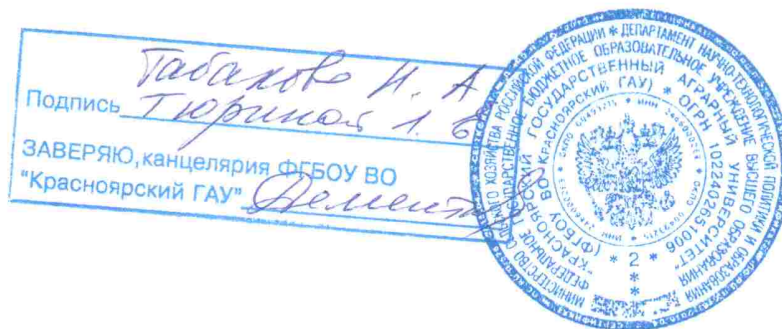 Табаков Н. А
Подпись Тюриной Л. Е
ЗАВЕРЯЮ, канцелярия ФГБОУ ВО
"Красноярский ГАУ"
МИНИСТЕРСТВО СЕЛЬСКОГО ХОЗЯЙСТВА РОССИЙСКОЙ ФЕДЕРАЦИИ * ДЕПАРТАМЕНТ НАУЧНО-ТЕХНОЛОГИЧЕСКОЙ ПОЛИТИКИ И ОБРАЗОВАНИЯ
ФЕДЕРАЛЬНОЕ ГОСУДАРСТВЕННОЕ БЮДЖЕТНОЕ ОБРАЗОВАТЕЛЬНОЕ УЧРЕЖДЕНИЕ ВЫСШЕГО ОБРАЗОВАНИЯ
"КРАСНОЯРСКИЙ ГОСУДАРСТВЕННЫЙ АГРАРНЫЙ УНИВЕРСИТЕТ"
(ФГБОУ ВО КРАСНОЯРСКИЙ ГАУ) * ОГРН 1022402651096
* 2 *